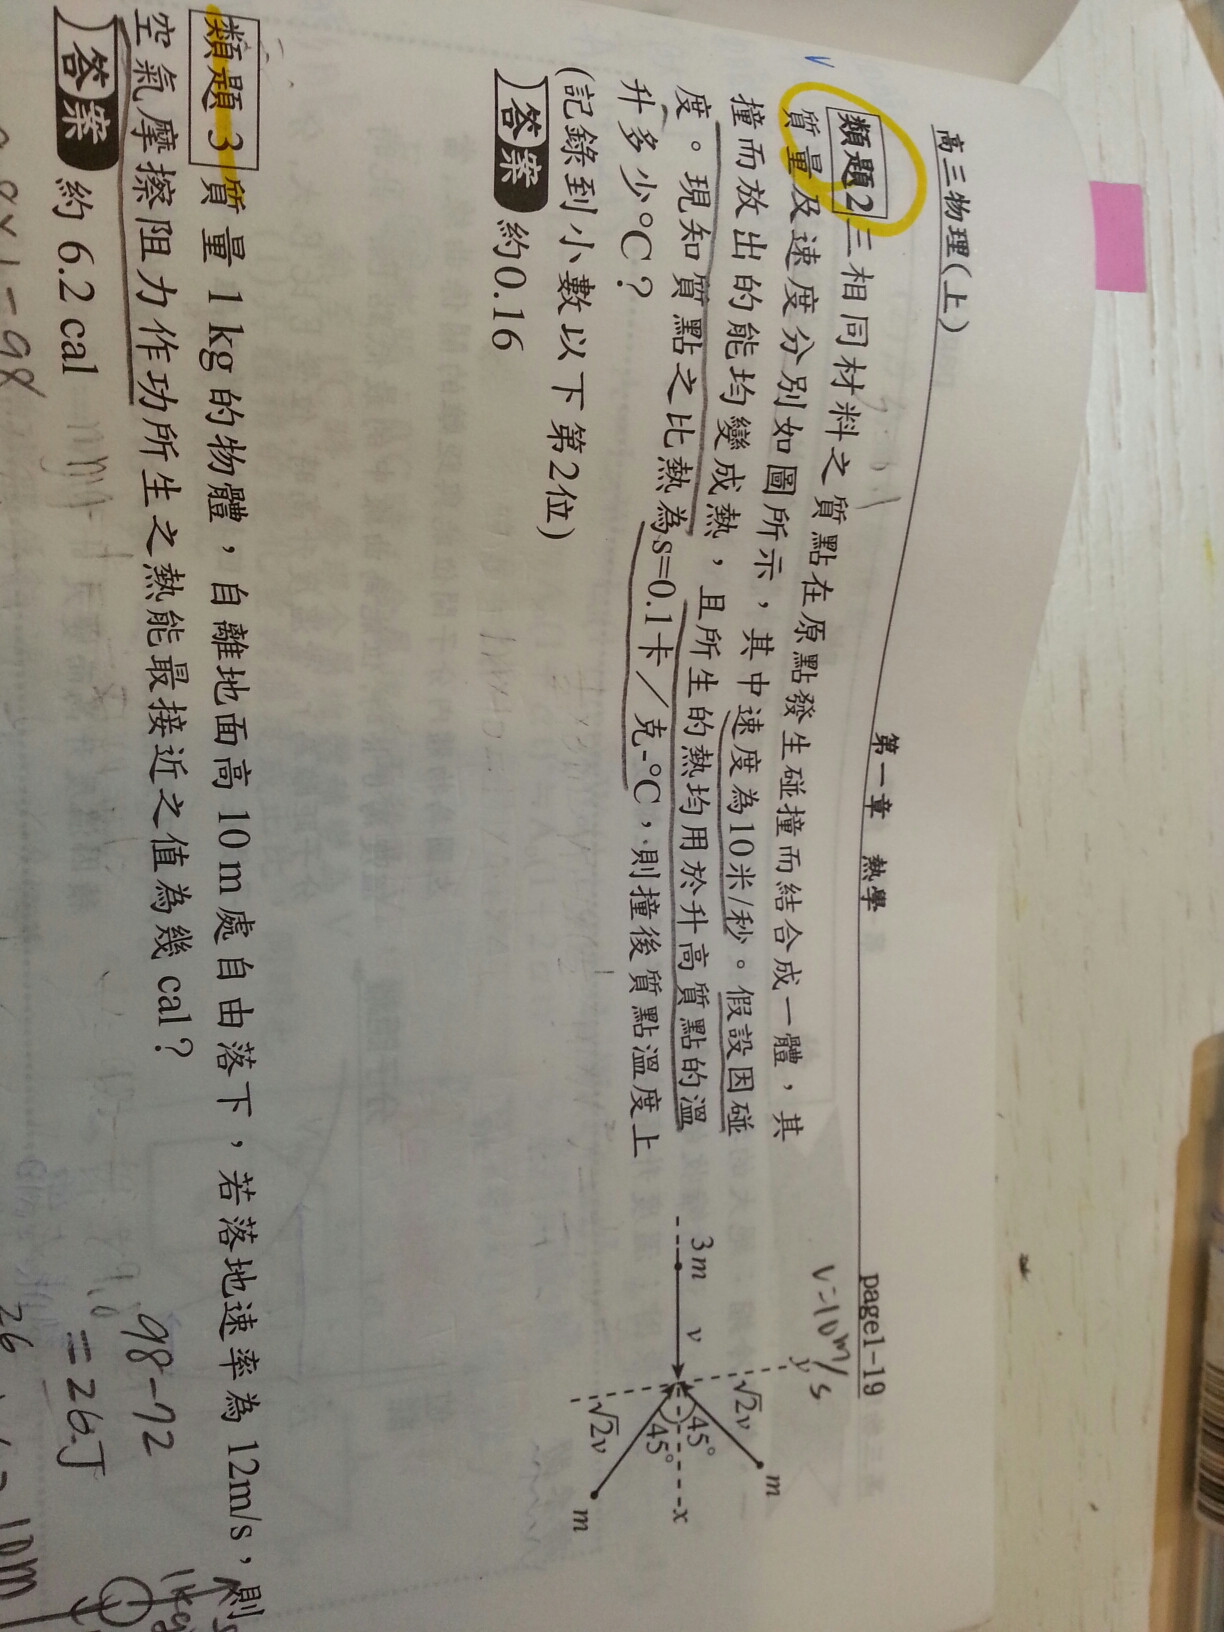 高三物理(上)
第一章 熱學
page1-19
v=10m/s
類題2 三相同材料之質點在原點發生碰撞而結合成一體，其
質量及速度分別如圖所示，其中速度為10米/秒。假設因碰
撞而放出的能均變成熱，且所生的熱均用於升高質點的溫
度。現知質點之比熱為s=0.1卡／克-°C，則撞後質點溫度上
升多少°C？
(記錄到小數以下第2位)
答案 約0.16
y
√2v
m
3m
v
45°
45°
x
√2v
m
類題3 質量 1 kg 的物體，自離地面高 10 m 處自由落下，若落地速率為 12m/s，則
空氣摩擦阻力作功所生之熱能最接近之值為幾 cal？
答案 約 6.2 cal
98-72
=26J
26
10m
1kg